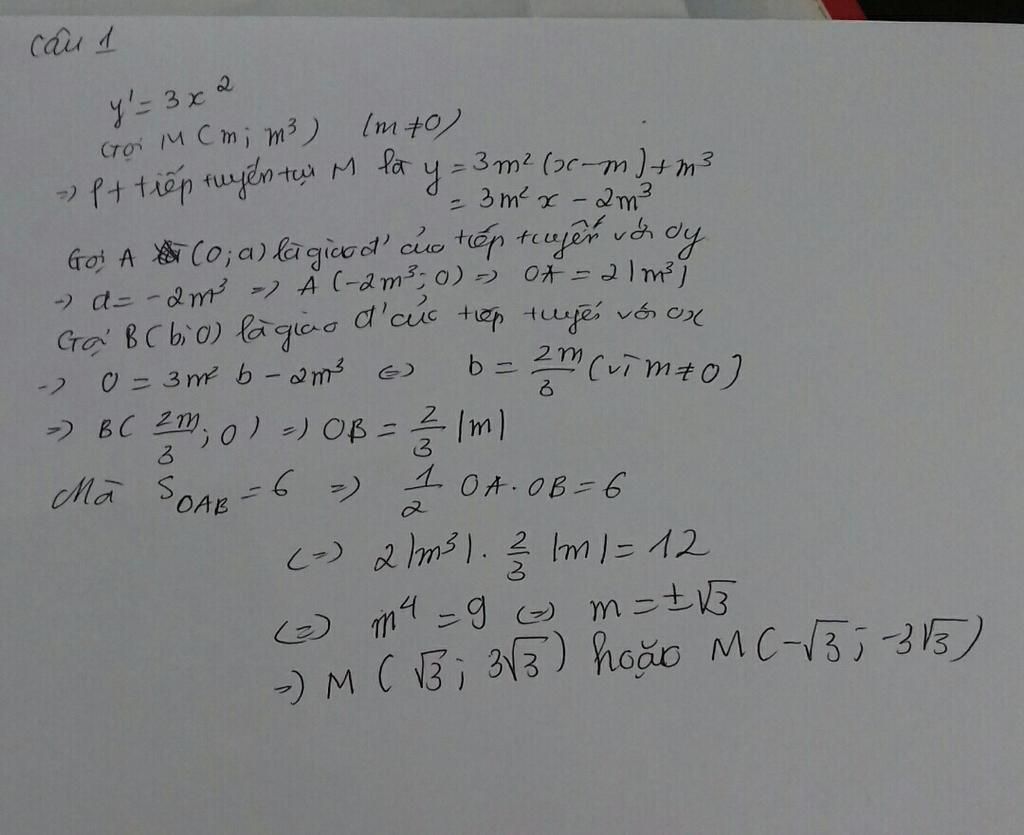 Câu 1
y' = 3x²
Gọi M (m; m³) (m≠0)
=> pt tiếp tuyến tại M là y = 3m² (x-m) + m³
= 3m² x - 2m³
Gọi A (0; a) là giao đ' của tiếp tuyến với Oy
-> a = -2m³ => A (-2m³; 0) => OA = 2|m³|
Gọi B (b; 0) là giao đ' của tiếp tuyến với Ox
-> 0 = 3m² b - 2m³ <=> b = 2m/3 (vì m≠0)
=> B( 2m/3 ; 0 ) => OB = 2/3 |m|
Mà S_OAB = 6 => 1/2 OA.OB = 6
<=> 2|m³|. 2/3 |m| = 12
<=> m⁴ = 9 <=> m = ±√3
=> M ( √3 ; 3√3 ) hoặc M (-√3 ; -3√3)